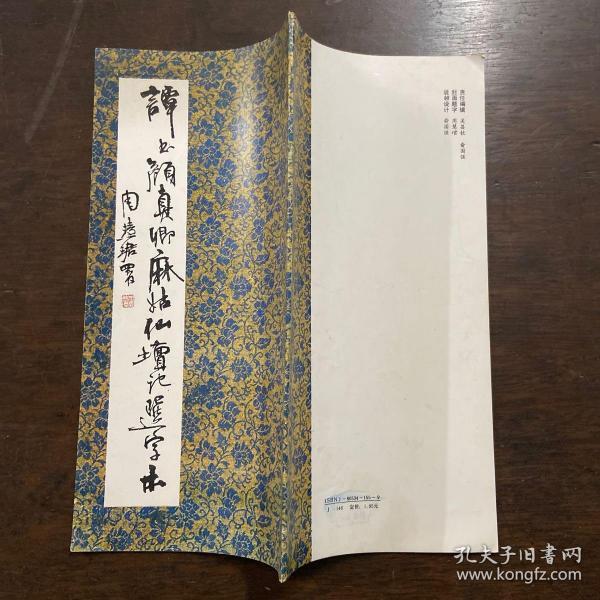 譚书颜真卿麻姑仙壇记选字本
周慧珺署
责任编辑 吴磊 俞国强
封面题字 周慧珺
装帧设计 俞国强
ISBN7-80534-155-9
J·146 定价：1.90元
孔夫子旧书网
www.kongfz.com